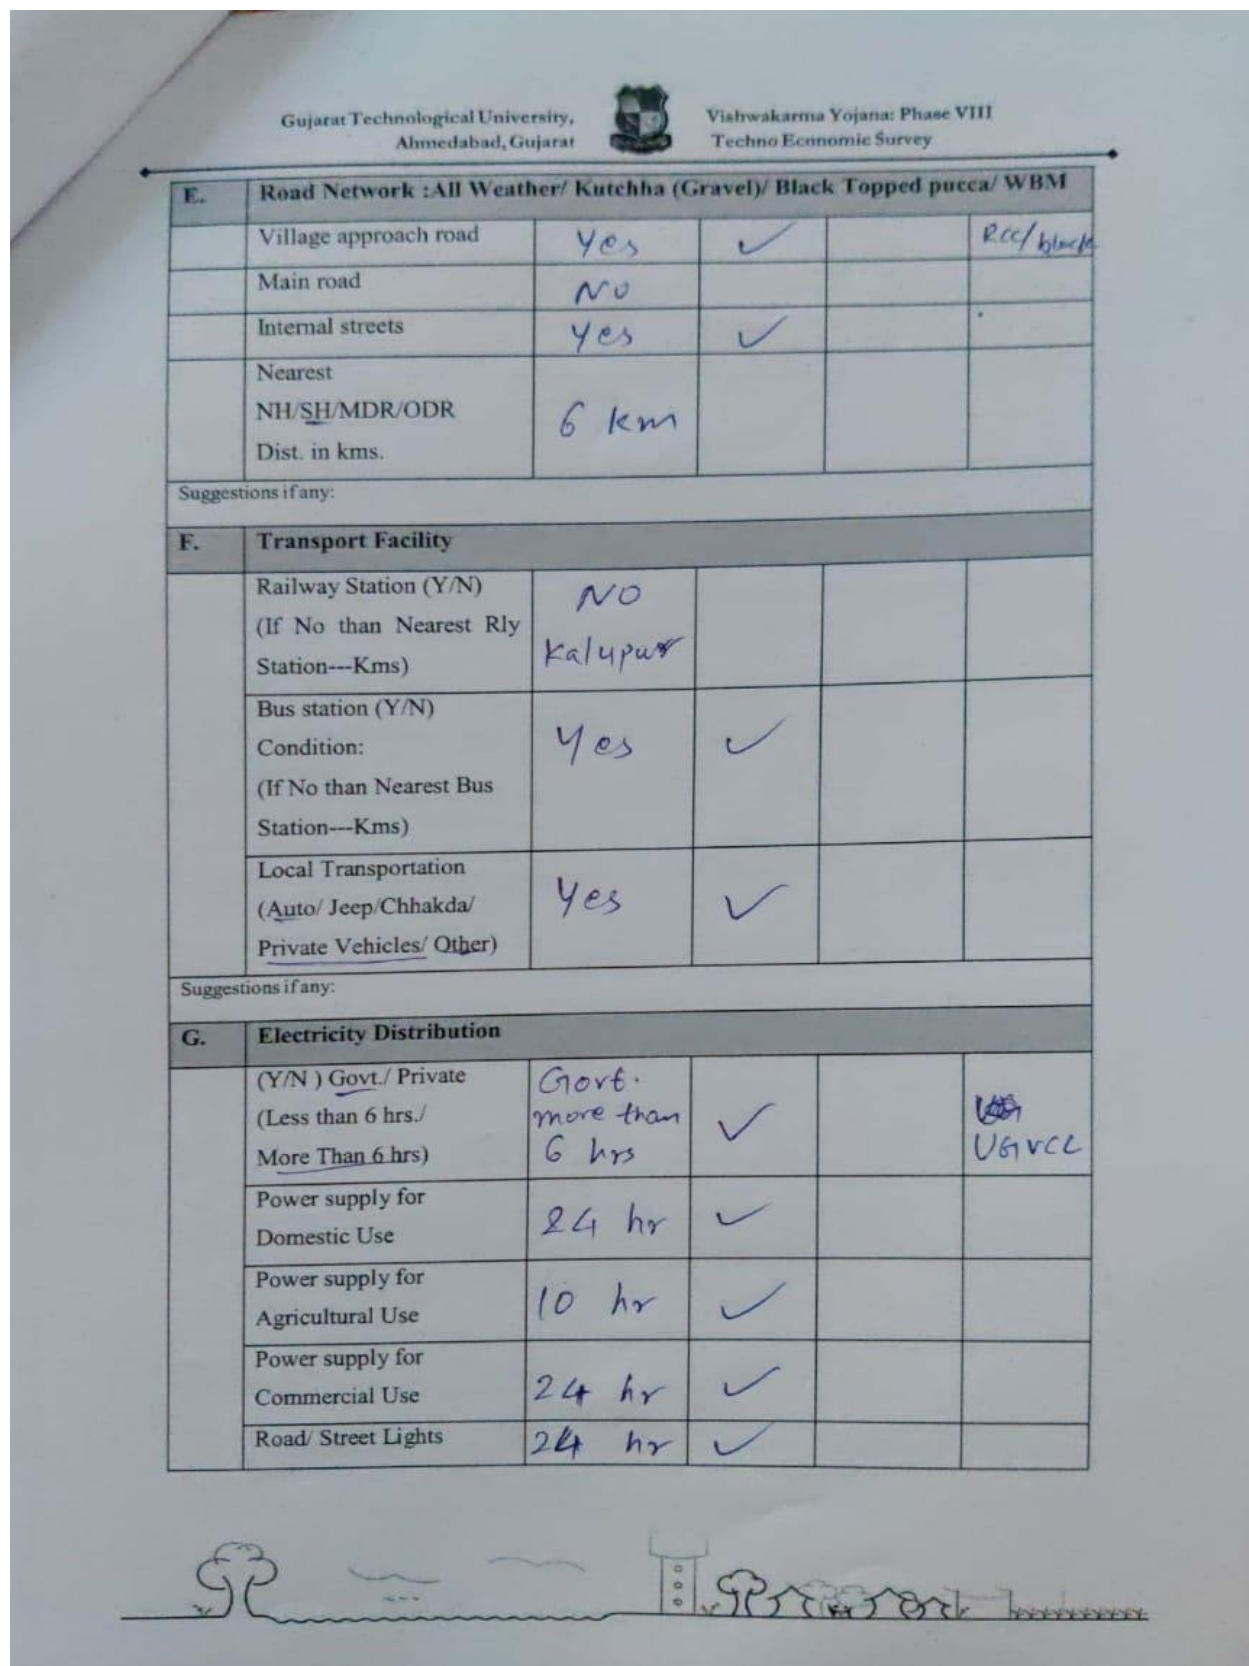 Gujarat Technological University,
Ahmedabad, Gujarat
Vishwakarma Yojana: Phase VIII
Techno Economic Survey
E. Road Network :All Weather/ Kutchha (Gravel)/ Black Topped pucca/ WBM
Village approach road Yes ✓ RCC/ black
Main road NO
Internal streets Yes ✓
Nearest
NH/SH/MDR/ODR
Dist. in kms.
6 km
Suggestions if any:
F. Transport Facility
Railway Station (Y/N)
(If No than Nearest Rly
Station---Kms)
NO
Kalupur
Bus station (Y/N)
Condition:
(If No than Nearest Bus
Station---Kms)
Yes ✓
Local Transportation
(Auto/ Jeep/Chhakda/
Private Vehicles/ Other)
Yes ✓
Suggestions if any:
G. Electricity Distribution
(Y/N ) Govt./ Private
(Less than 6 hrs./
More Than 6 hrs)
Govt.
more than
6 hrs
✓
UGVCL
Power supply for
Domestic Use
24 hr ✓
Power supply for
Agricultural Use
10 hr ✓
Power supply for
Commercial Use
24 hr ✓
Road/ Street Lights 24 hr ✓